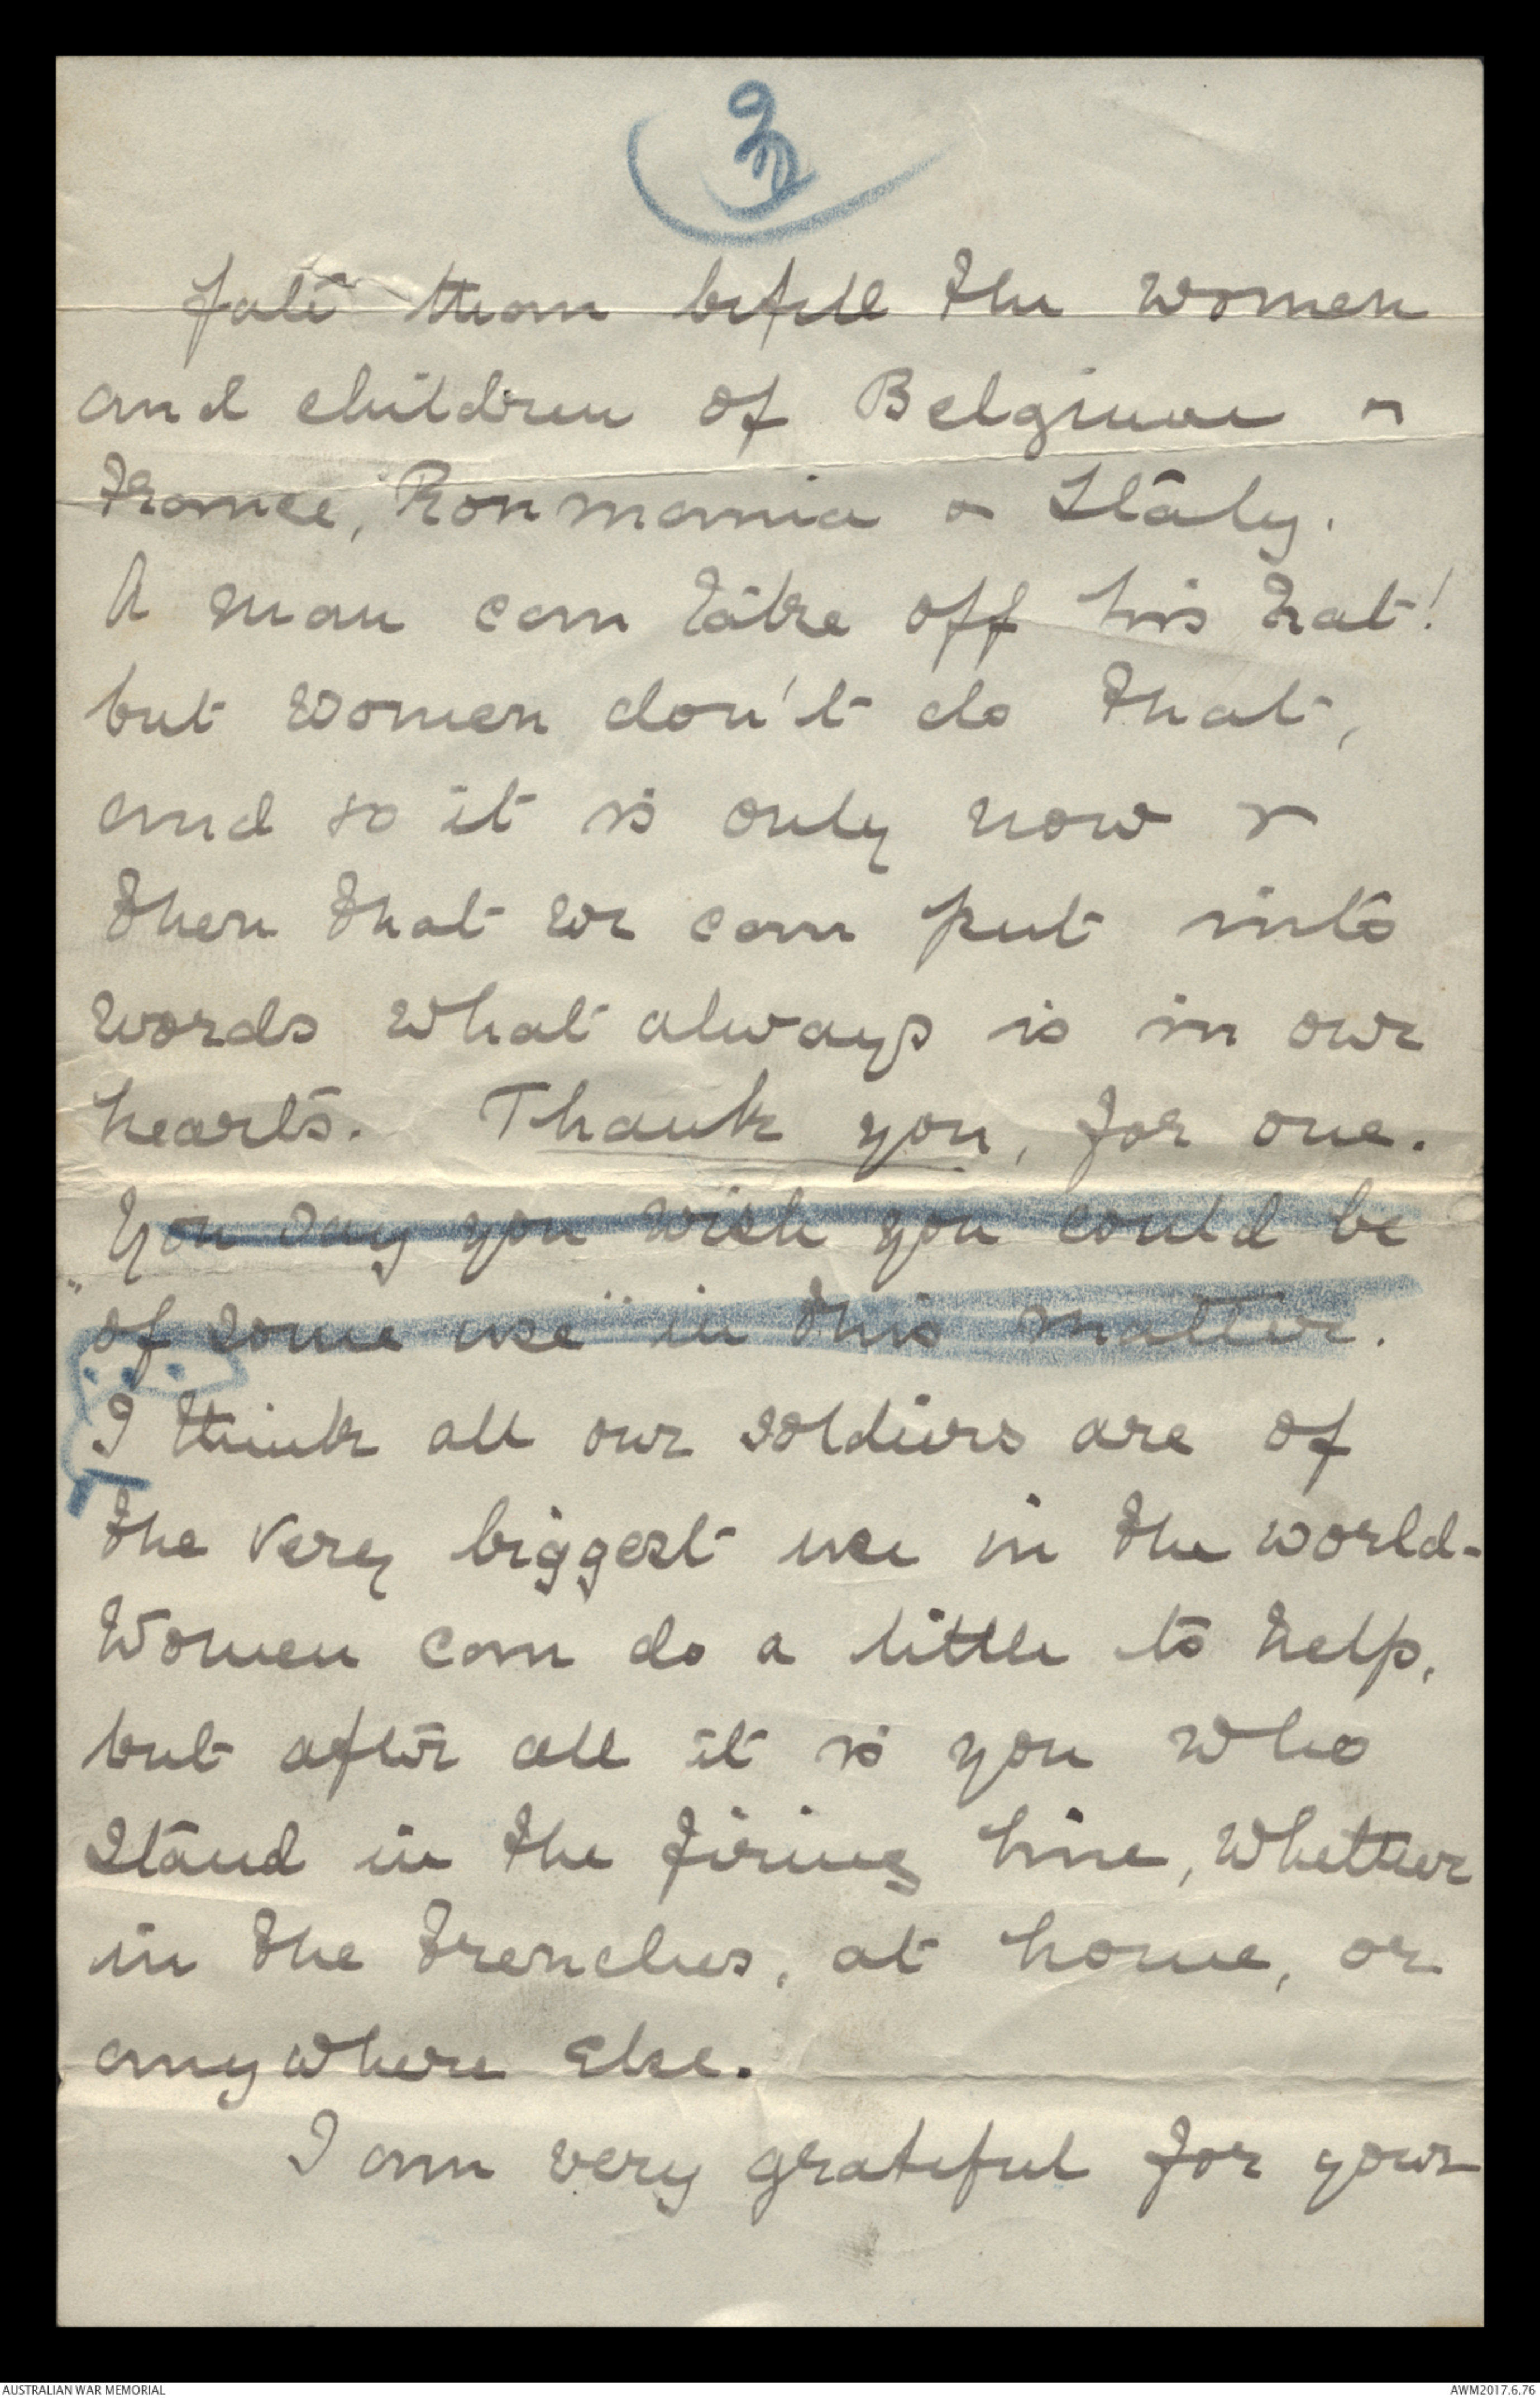 3
fate than befell the women
and children of Belgium &
France, Roumania & Italy.
A man can take off his hat!
but women don't do that,
and so it is only now &
then that we can put into
words what always is in our
hearts. Thank you, for one.
You say you wish you could be
"of some use" in this matter.
I think all our soldiers are of
the very biggest use in the world-
Women can do a little to help,
but after all it is you who
stand in the firing line, whether
in the trenches, at home, or
anywhere else.
I am very grateful for your
AUSTRALIAN WAR MEMORIAL
AWM2017.6.76